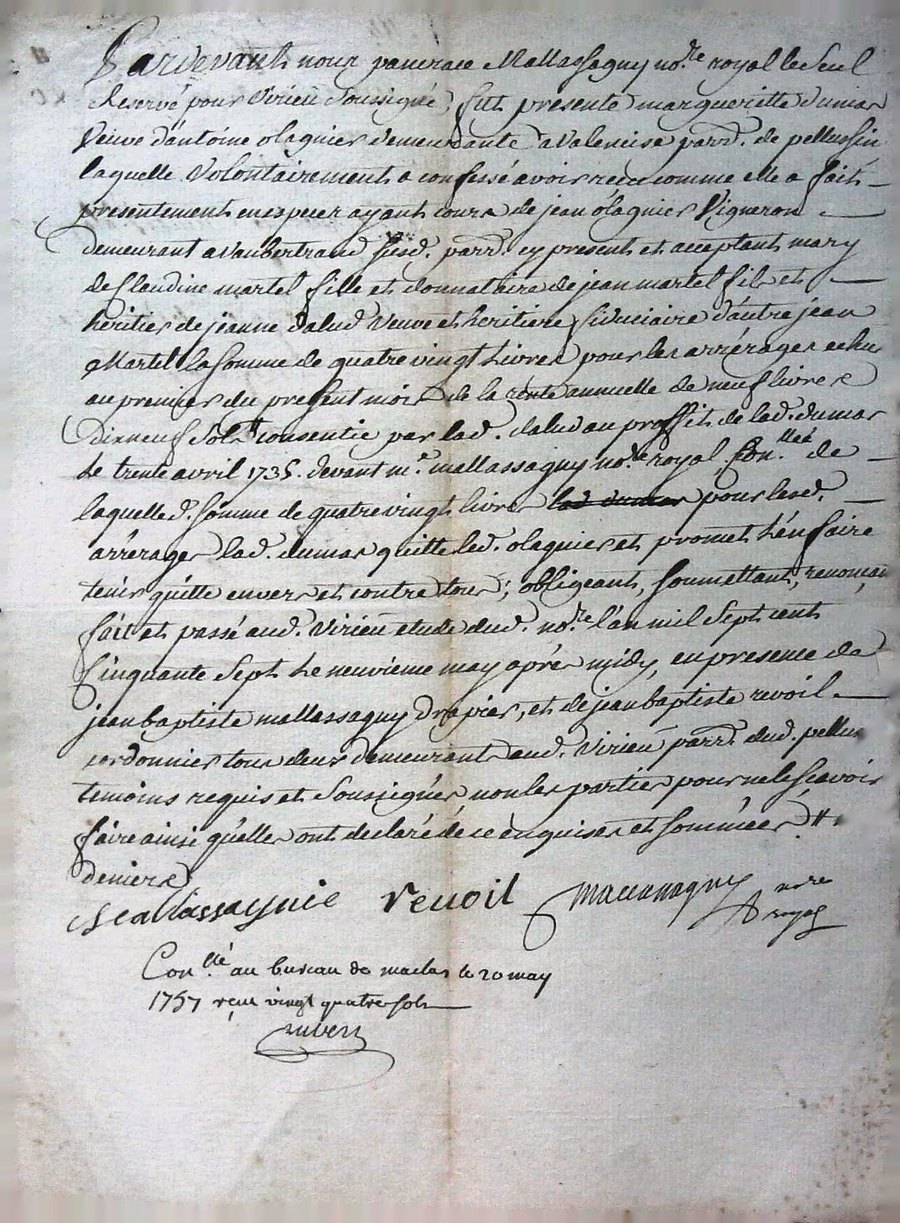 Pardevant nous pancrace Mallassagny no.re royal le seul
Reservé pour Virieu soussigné, fut presente margueritte dumas
veuve d'antoine olagnier demeurante a valencise parr.e de pellussin
laquelle volontairement a confessé avoir recu comme elle a fait
presentement en especes ayant cours de jean olagnier vigneron
demeurant a vaubertrand susd. parr.e cy present et acceptant mary
de Claudine martel fille et donnataire de jean martel fils et
heritier de jeanne dalud veuve et heritiere fiduciaire d'autre jean
Martel la somme de quatre vingt livres pour les arrérages echus
au premier du present mois de la rente annuelle de neuf livres
dixneuf sols # consentie par lad. dalud au proffit de lad. dumas
le trente avril 1735. devant m.e mallassagny no.re royal con.llée de
laquelle d. somme de quatre vingt livres lad dumas pour lesd.
arrérages lad. dumas quitte led. olagnier et promet l'en faire
tenir quitte envers et contre tous; obligeant, soumettant, renonçan
fait et passé aud. Virieu etude dud. no.re l'an mil sept cent
Cinquante sept le neuvieme may après midy, en presence de
jean baptiste mallassagny drapier, et de jean baptiste revoil
cordonnier tous deux demeurant aud. Virieu parr.e dud. pellus
temoins requis et soussignés, non les parties pour ne le scavoir
faire ainsi qu'elles ont declaré de ce enquises et sommées. #
deniers
revoil Mallassagny no.re
royal
Con.llé au bureau de maclas le 20 may
1757 reçu vingt quatre sols